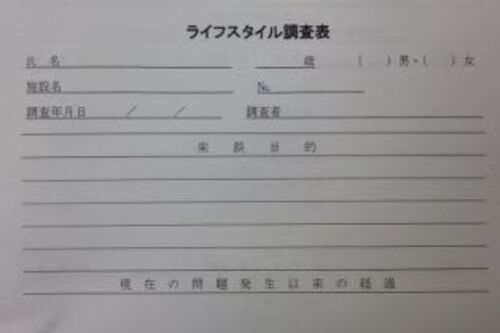 ライフスタイル調査表
氏名 歳 ( )男・( )女
施設名 No.
調査年月日 / / 調査者
来談目的
現在の問題発生以来の経過